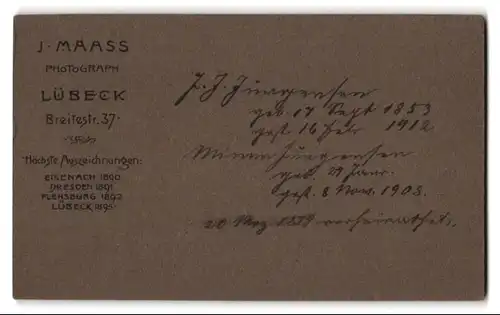 J. MAASS
PHOTOGRAPH
LÜBECK
Breitestr. 37.
Höchste Auszeichnungen:
EISENACH 1890
DRESDEN 1891
FLENSBURG 1892
LÜBECK 1895
J. J. Jürgensen
geb. 17 Sept 1853
gest. 16 Febr 1912
Minna Jürgensen
geb. 29 Januar.
gest. 8 Nov. 1908.
20 März 1879 verheirathet.